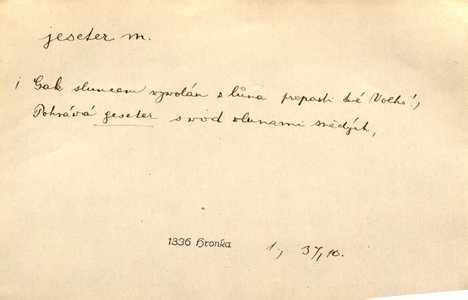 jeseter m.
i Gak sluncem vyvolán z lůna propasti své (Volhó!)
Pohrává geseter s wód vlunami snědých,
1336 Hronka 1., 37,10.